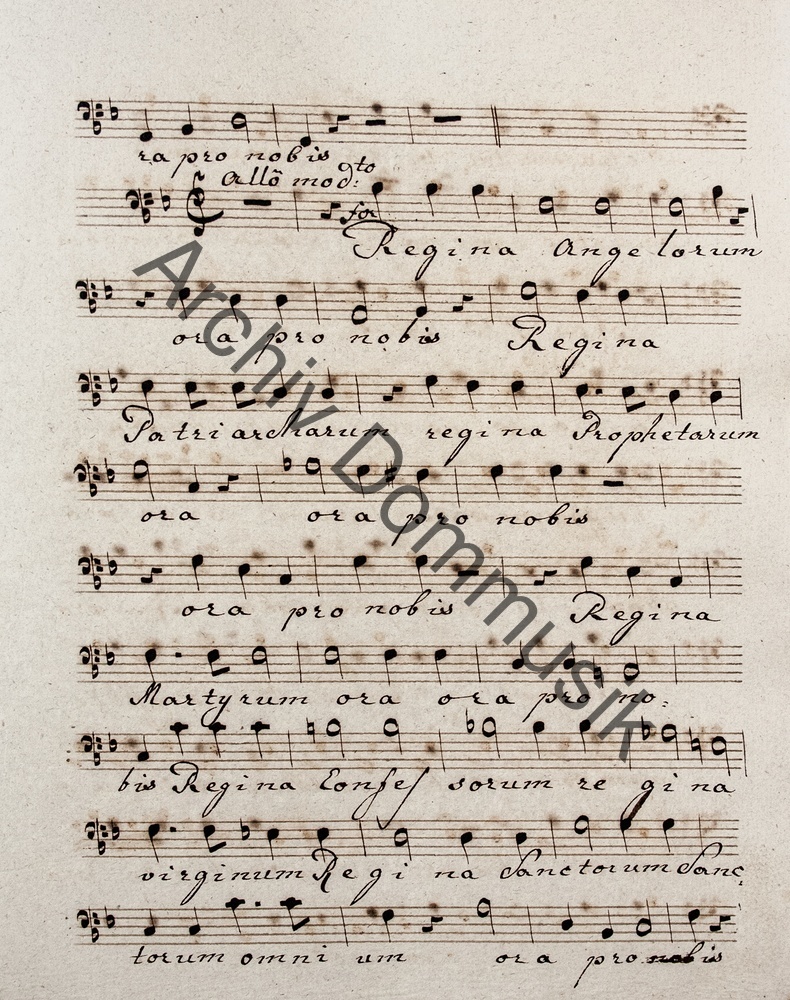 ra pro nobis
Allo modto
for
Regina Angelorum
ora pro nobis Regina
Patriarcharum regina Prophetarum
ora ora pro nobis
ora pro nobis Regina
Martyrum ora ora pro no:
bis Regina Confessorum regina
virginum Regina Sanctorum Sanc:
torum omnium ora pro nobis
Archiv Dommusik